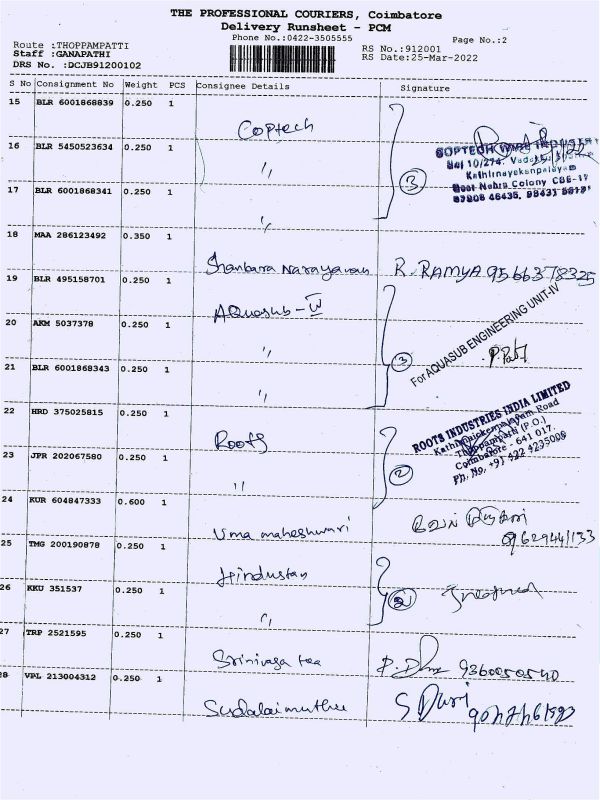 THE PROFESSIONAL COURIERS, Coimbatore
Delivery Runsheet - PCM
Phone No.:0422-3505555
Page No.:2
Route :THOPPAMPATTI
Staff :GANAPATHI
DRS No. :DCJB91200102
RS No.:912001
RS Date:25-Mar-2022
S No Consignment No Weight PCS Consignee Details Signature
15 BLR 6001868839 0.250 1
Coptech
16 BLR 5450523634 0.250 1
〃
17 BLR 6001868341 0.250 1
〃
3
COPTECH WIRE INDUSTRY
Kathirnayakanpalayam
Post Nehru Colony CBE-17
18 MAA 286123492 0.350 1
Shankara Narayanan R. RAMYA 9566378325
19 BLR 495158701 0.250 1
Aquasub-IV
20 AKM 5037378 0.250 1
〃
21 BLR 6001868343 0.250 1
〃
3
For AQUASUB ENGINEERING UNIT-IV
22 HRD 375025815 0.250 1
Roots
23 JPR 202067580 0.250 1
〃
2
ROOTS INDUSTRIES INDIA LIMITED
Road
Thoppampatti (P.O.)
Coimbatore - 641 017.
Ph. No. +91 422 4235008
24 KUR 604847333 0.600 1
Uma maheshwari
25 TMG 200190878 0.250 1
Hindustan
26 KKU 351537 0.250 1
〃
2
27 TRP 2521595 0.250 1
Srinivasa tea 9360050540
28 VPL 213004312 0.250 1
Sudalaimuthu